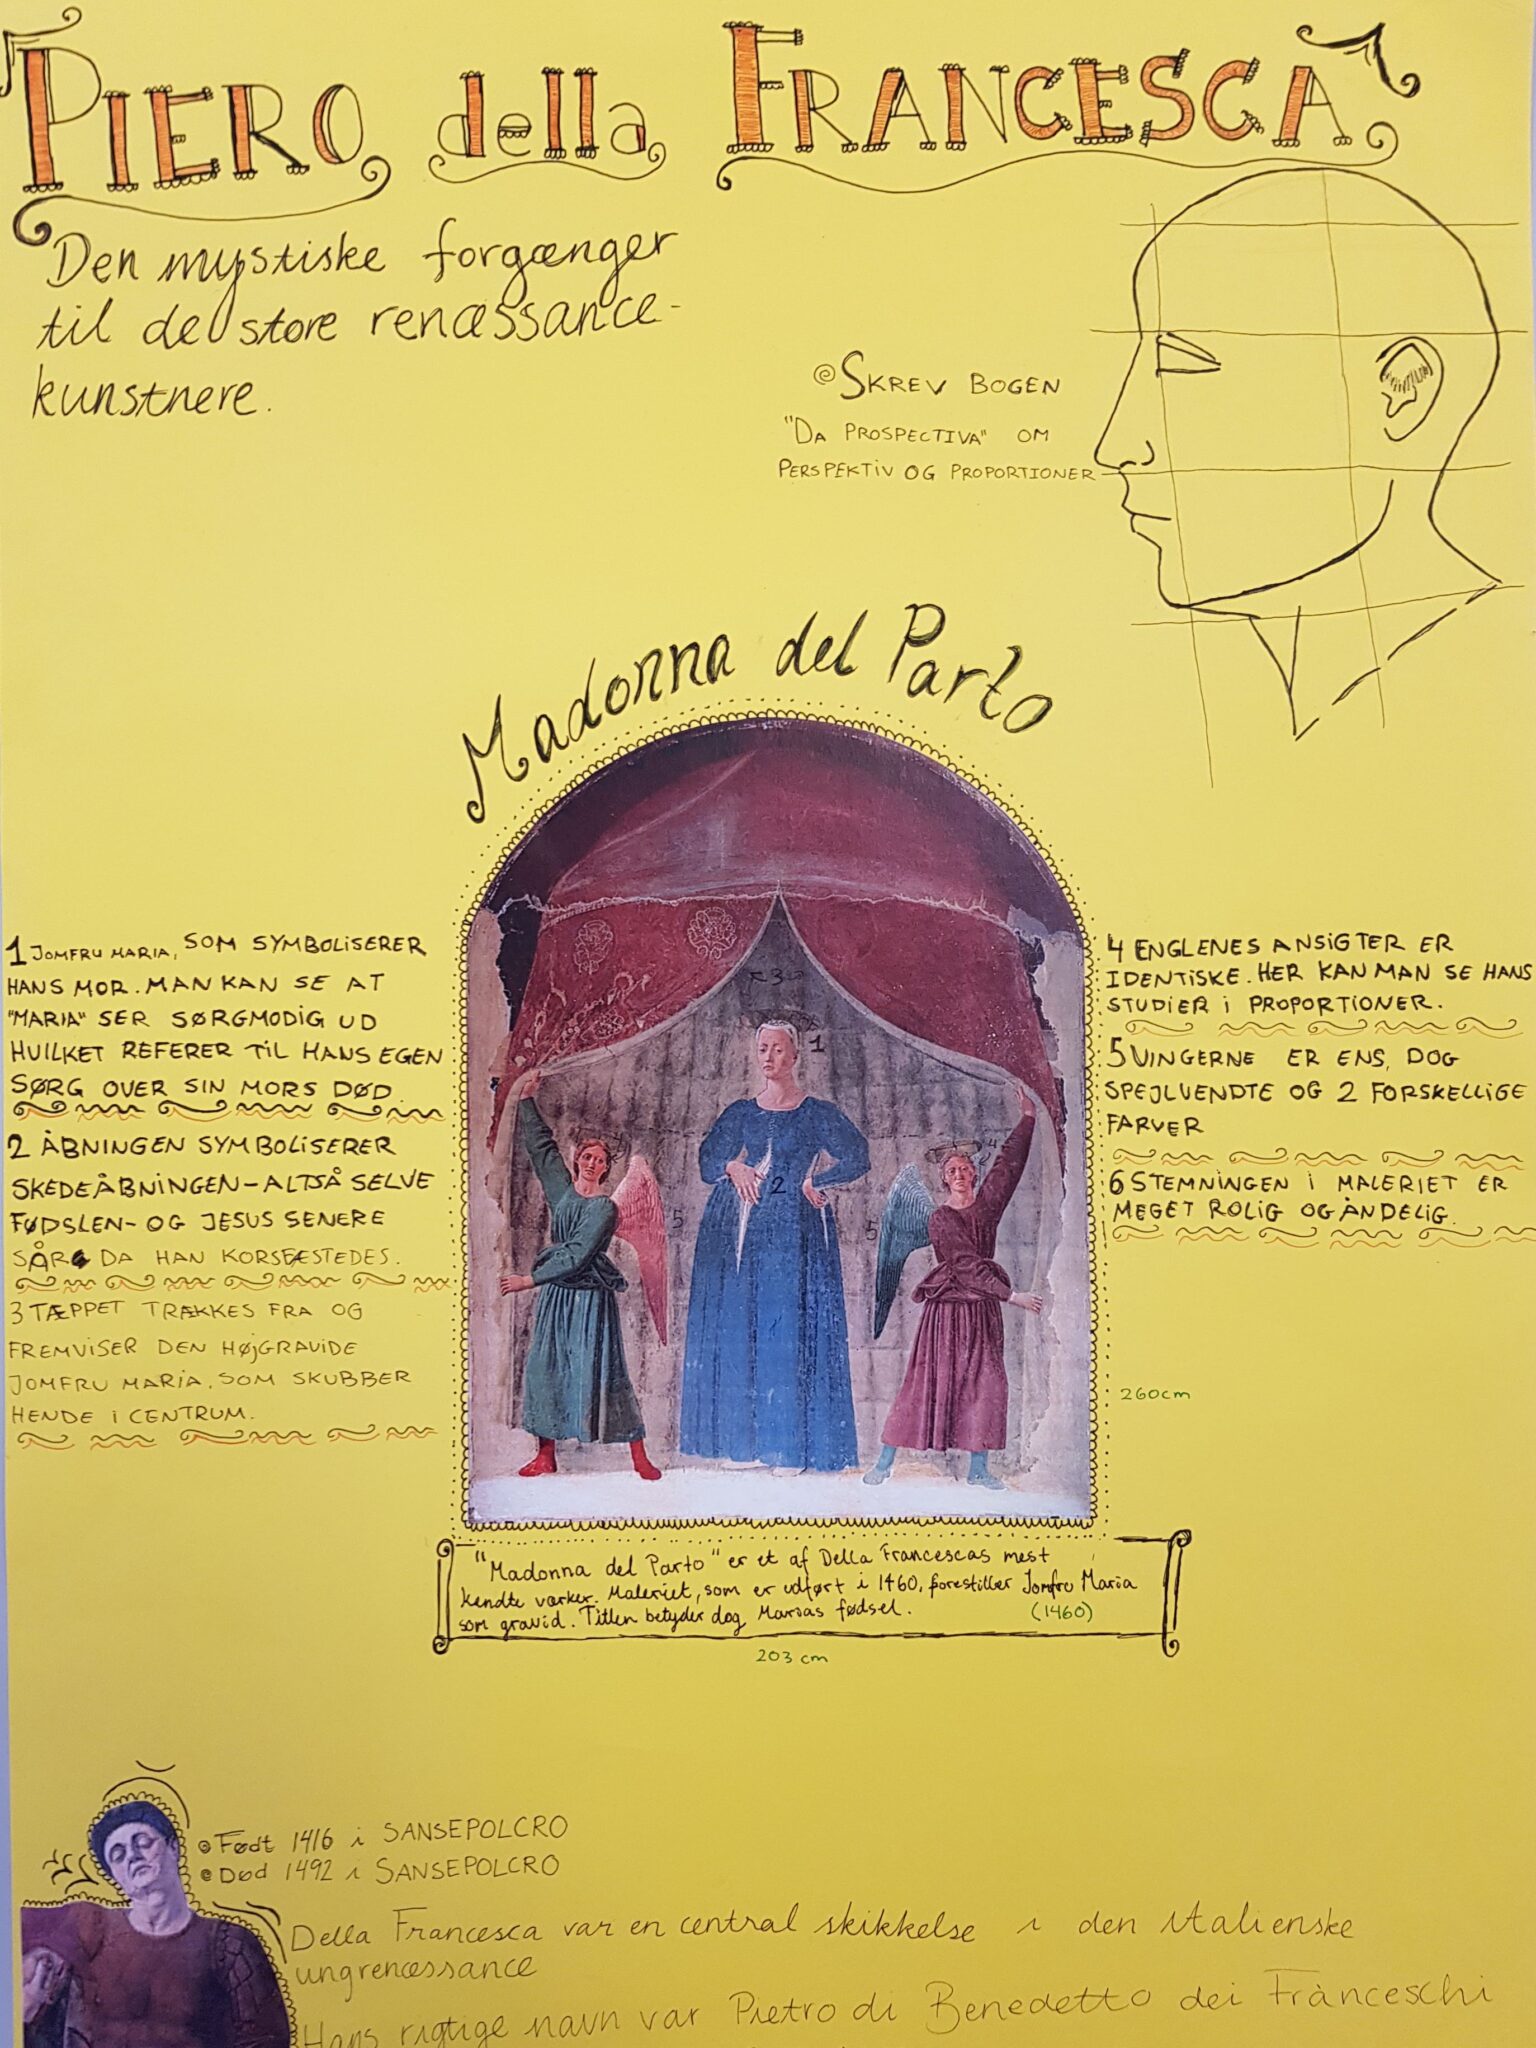 PIERO della FRANCESCA
Den mystiske forgænger
til de store renæssance-
kunstnere.
SKREV BOGEN
"DA PROSPECTIVA" OM
PERSPEKTIV OG PROPORTIONER
Madonna del Parto
1 JOMFRU MARIA, SOM SYMBOLISERER
HANS MOR. MAN KAN SE AT
"MARIA" SER SØRGMODIG UD
HVILKET REFERER TIL HANS EGEN
SØRG OVER SIN MORS DØD
2 ÅBNINGEN SYMBOLISERER
SKEDEÅBNINGEN - ALTSÅ SELVE
FØDSLEN - OG JESUS SENERE
SÅR DA HAN KORSFÆSTEDES.
3 TÆPPET TRÆKKES FRA OG
FREMVISER DEN HØJGRAVIDE
JOMFRU MARIA. SOM SKUBBER
HENDE I CENTRUM.
3
1
4
4
2
5
5
4 ENGLENES ANSIGTER ER
IDENTISKE. HER KAN MAN SE HANS
STUDIER I PROPORTIONER.
5 VINGERNE ER ENS, DOG
SPEJLVENDTE OG 2 FORSKELLIGE
FARVER
6 STEMNINGEN I MALERIET ER
MEGET ROLIG OG ÅNDELIG.
260cm
"Madonna del Parto" er et af Della Francescas mest
kendte værker. Maleriet, som er udført i 1460, forestiller Jomfru Maria
som gravid. Titlen betyder dog Marias fødsel. (1460)
203 cm
Født 1416 i SANSEPOLCRO
Død 1492 i SANSEPOLCRO
Della Francesca var en central skikkelse i den italienske
ungrenæssance
Hans rigtige navn var Pietro di Benedetto dei Franceschi